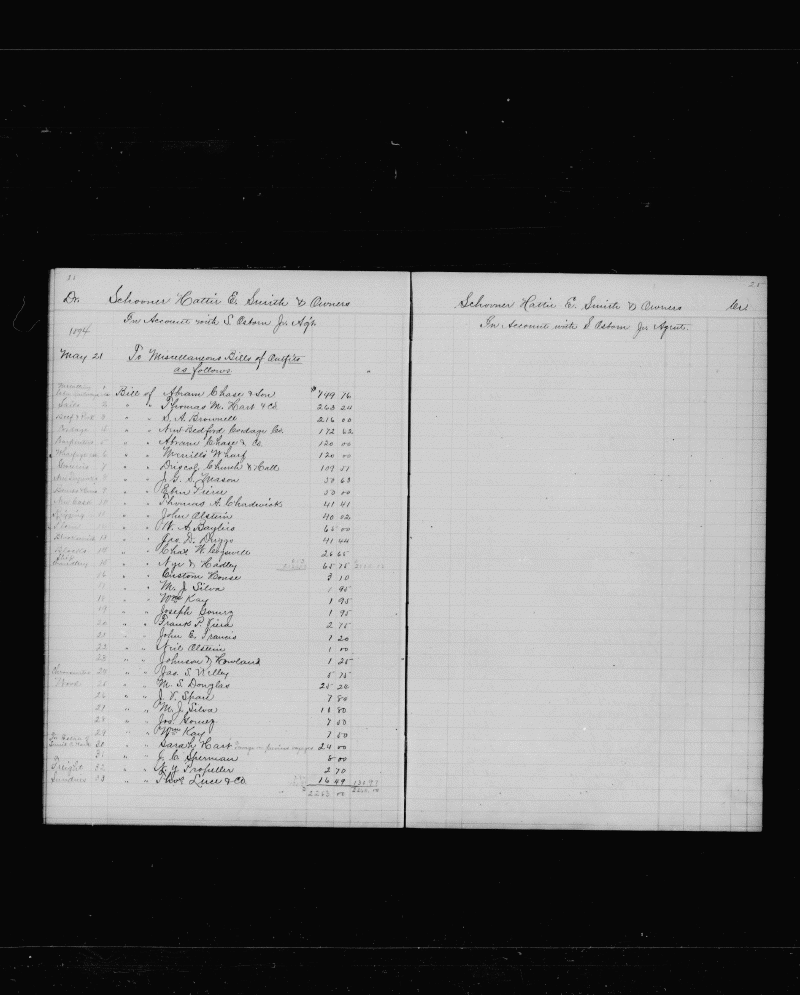 Dr. Schooner Hattie E. Smith & Owners
In Account with S. Osborn Jr Agt.
1894
May 21 To Miscellaneous Bills of Outfits
as follows
1 Bill of Abram Chase & Son $ 799 76
Sails 2 " " Thomas M. Hart & Co. 263 24
Beef & Pork 3 " " S. A. Brownell 216 00
Cordage 4 " " New Bedford Cordage Co. 172 62
5 " " Abram Chase & Co 120 00
Wharfage 6 " " Merrills Wharf 120 00
7 " " Driscol Church & Hall 109 51
8 " " J. & S. Mason 50 63
9 " " Eben Pierce 50 00
New boat 10 " " Thomas A. Chadwick 41 41
11 " " John Olstein 40 02
" " W. A. Bayliss 65 00
" " Jas. D. Driggs 41 44
" " Chas W. Cogswell 26 65
15 " " Nye & Hadley 65 75
16 " " Custom House 3 10
" " M. J. Silva 1 95
18 " " Wm Kay 1 95
19 " " Joseph Gomez 1 95
20 " " Frank P. Viera 2 75
21 " " John E. Francis 1 20
22 " " Neil Olstein 1 00
23 " " Johnson & Howland 1 25
" " Jas. S. Willey 5 75
" " M. S. Douglas 25 20
26 " " J. V. Spare 7 80
" " M. J. Silva 11 80
28 " " Jos. Gomez 7 50
29 " " Wm Kay 7 50
30 " " Sarah Hart 24 00
31 " " J. C. Sherman 8 00
Freight 32 " " N. Y. Propeller 2 70
Sundries 33 " " Thos. Luce & Co. 16 49
2263 10
21
Schooner Hattie E. Smith & Owners Cr.
In Account with S. Osborn Jr Agent.